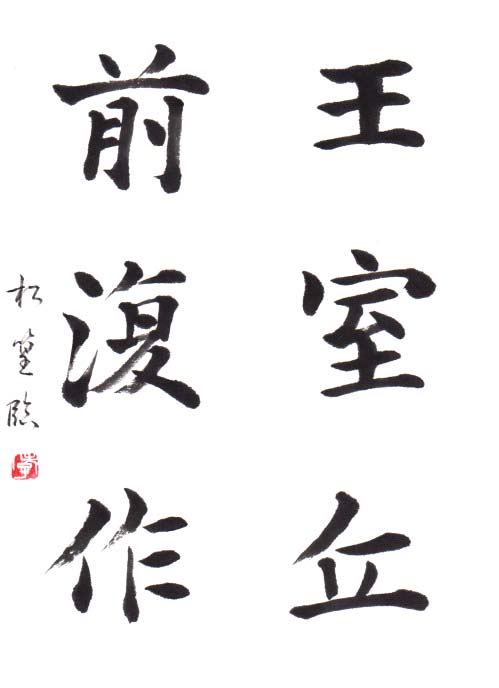 王室丘
前復作
松臨